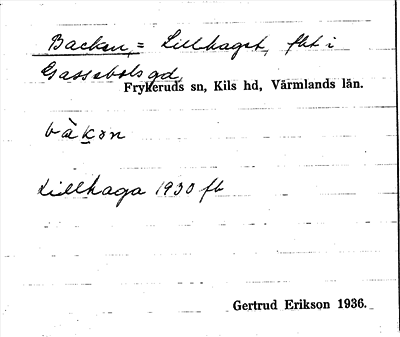 Backen, = Lillhaget, fht i
Gassebols gd,
Frykeruds sn, Kils hd, Värmlands län.
bàkɔn
Lillhaga 1930 fb
Gertrud Erikson 1936.